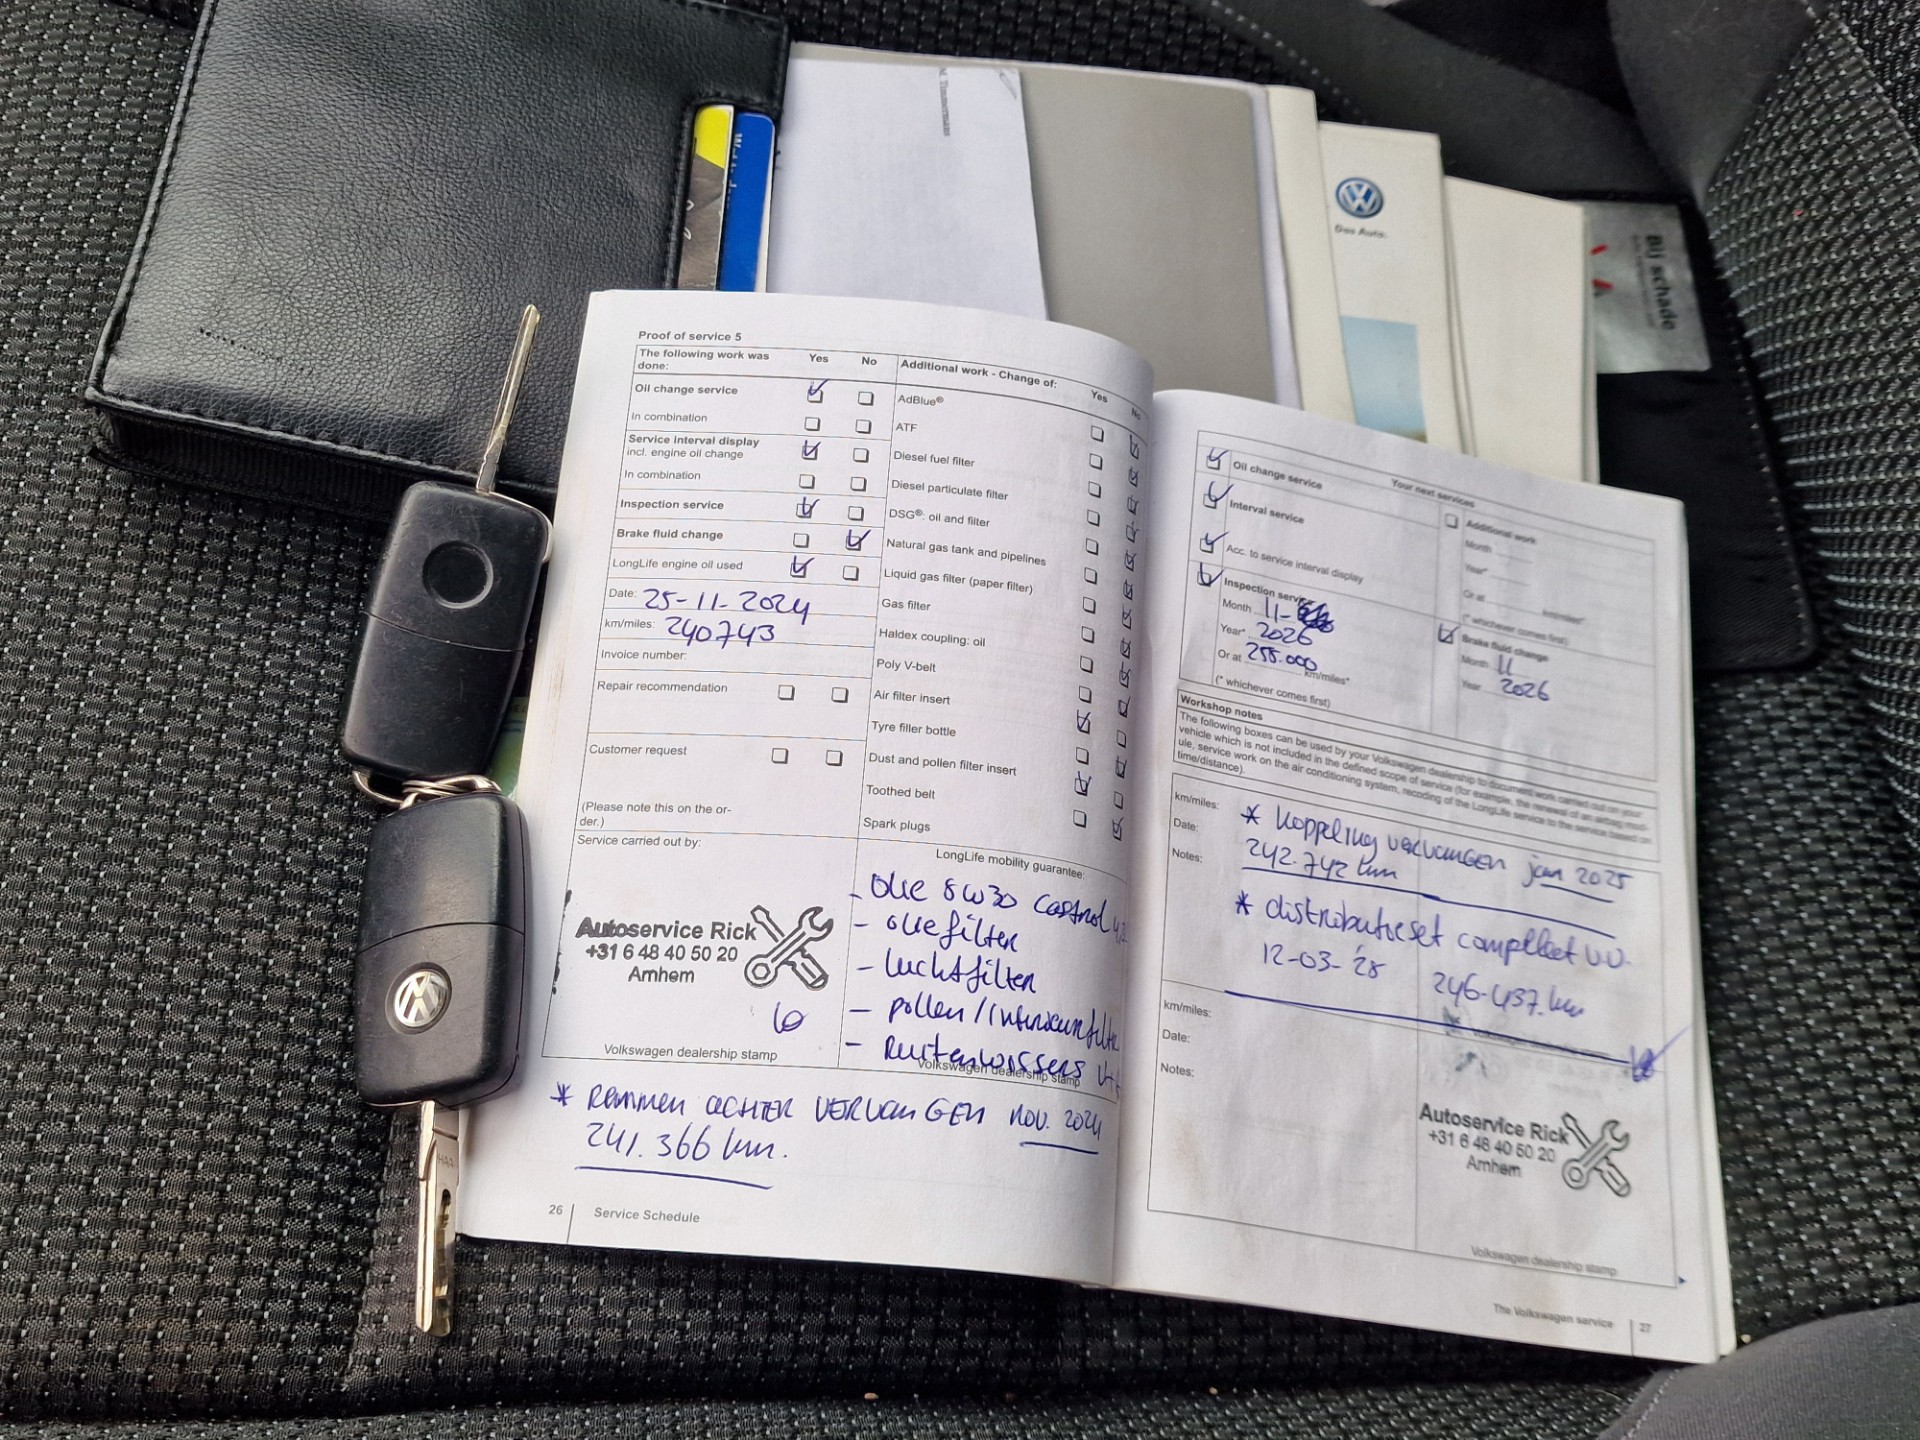 M. Timmermans
Das Auto.
Bij schade
Proof of service 5
The following work was done:
Yes
No
Oil change service
In combination
Service interval display
incl. engine oil change
In combination
Inspection service
Brake fluid change
LongLife engine oil used
Date: 25-11-2024
km/miles: 240743
Invoice number:
Repair recommendation
Customer request
(Please note this on the or-
der.)
Service carried out by:
Autoservice Rick
+31 6 48 40 50 20
Arnhem
Volkswagen dealership stamp
Additional work - Change of:
Yes
No
AdBlue®
ATF
Diesel fuel filter
Diesel particulate filter
DSG®: oil and filter
Natural gas tank and pipelines
Liquid gas filter (paper filter)
Gas filter
Haldex coupling: oil
Poly V-belt
Air filter insert
Tyre filler bottle
Dust and pollen filter insert
Toothed belt
Spark plugs
LongLife mobility guarantee:
- olie 5w30 castrol
- oliefilter
- luchtfilter
- pollen/interieurfilter
- Ruitenwissers
Volkswagen dealership stamp
* Remmen achter vervangen nov. 2024
241.366 km.
26
Service Schedule
Your next services
Oil change service
Interval service
Acc. to service interval display
Inspection service
Month 11-
Year* 2026
Or at 255.000 km/miles*
(* whichever comes first)
Additional work
Month
Year*
Or at km/miles*
(* whichever comes first)
Brake fluid change
Month 11
Year 2026
Workshop notes
The following boxes can be used by your Volkswagen dealership to document work carried out on your
vehicle which is not included in the defined scope of service (for example, the renewal of an airbag mod-
ule, service work on the air conditioning system, recoding of the LongLife service to the service based on
time/distance).
km/miles:
Date:
Notes:
* Koppeling vervangen jan 2025
242.742 km
* distributieset compleet v.v.
12-03-'25
246.437 km
Volkswagen dealership stamp
km/miles:
Date:
Notes:
Autoservice Rick
+31 6 48 40 50 20
Arnhem
Volkswagen dealership stamp
The Volkswagen service
27